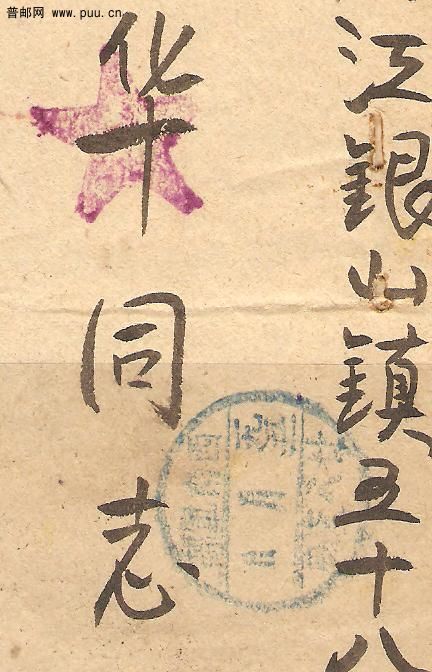 普邮网 www.puu.cn
江銀山鎮五十八
华同志